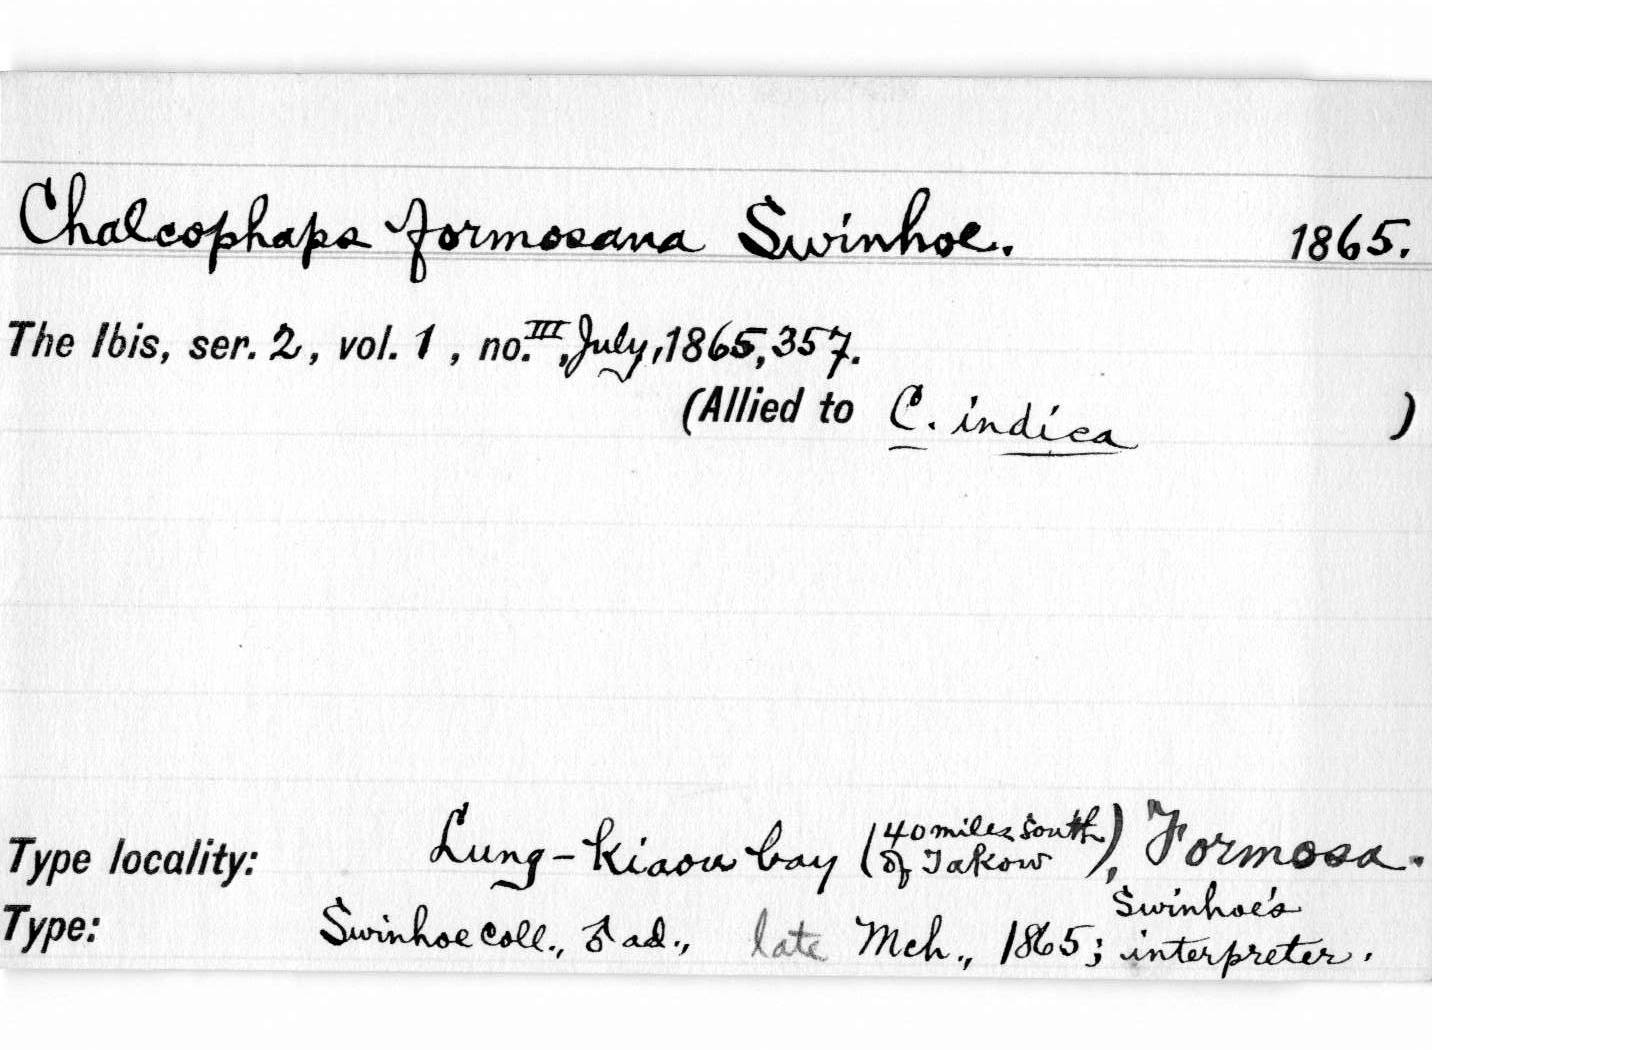 Chalcophaps formosana Swinhoe. 1865.
The Ibis, ser. 2, vol. 1, no. III, July, 1865, 357.
(Allied to C. indica )
Type locality: Lung-Kiaou bay (40 miles south of Takow), Formosa.
Type: Swinhoe coll., ♂ ad., late Mch., 1865; Swinhoe's interpreter.